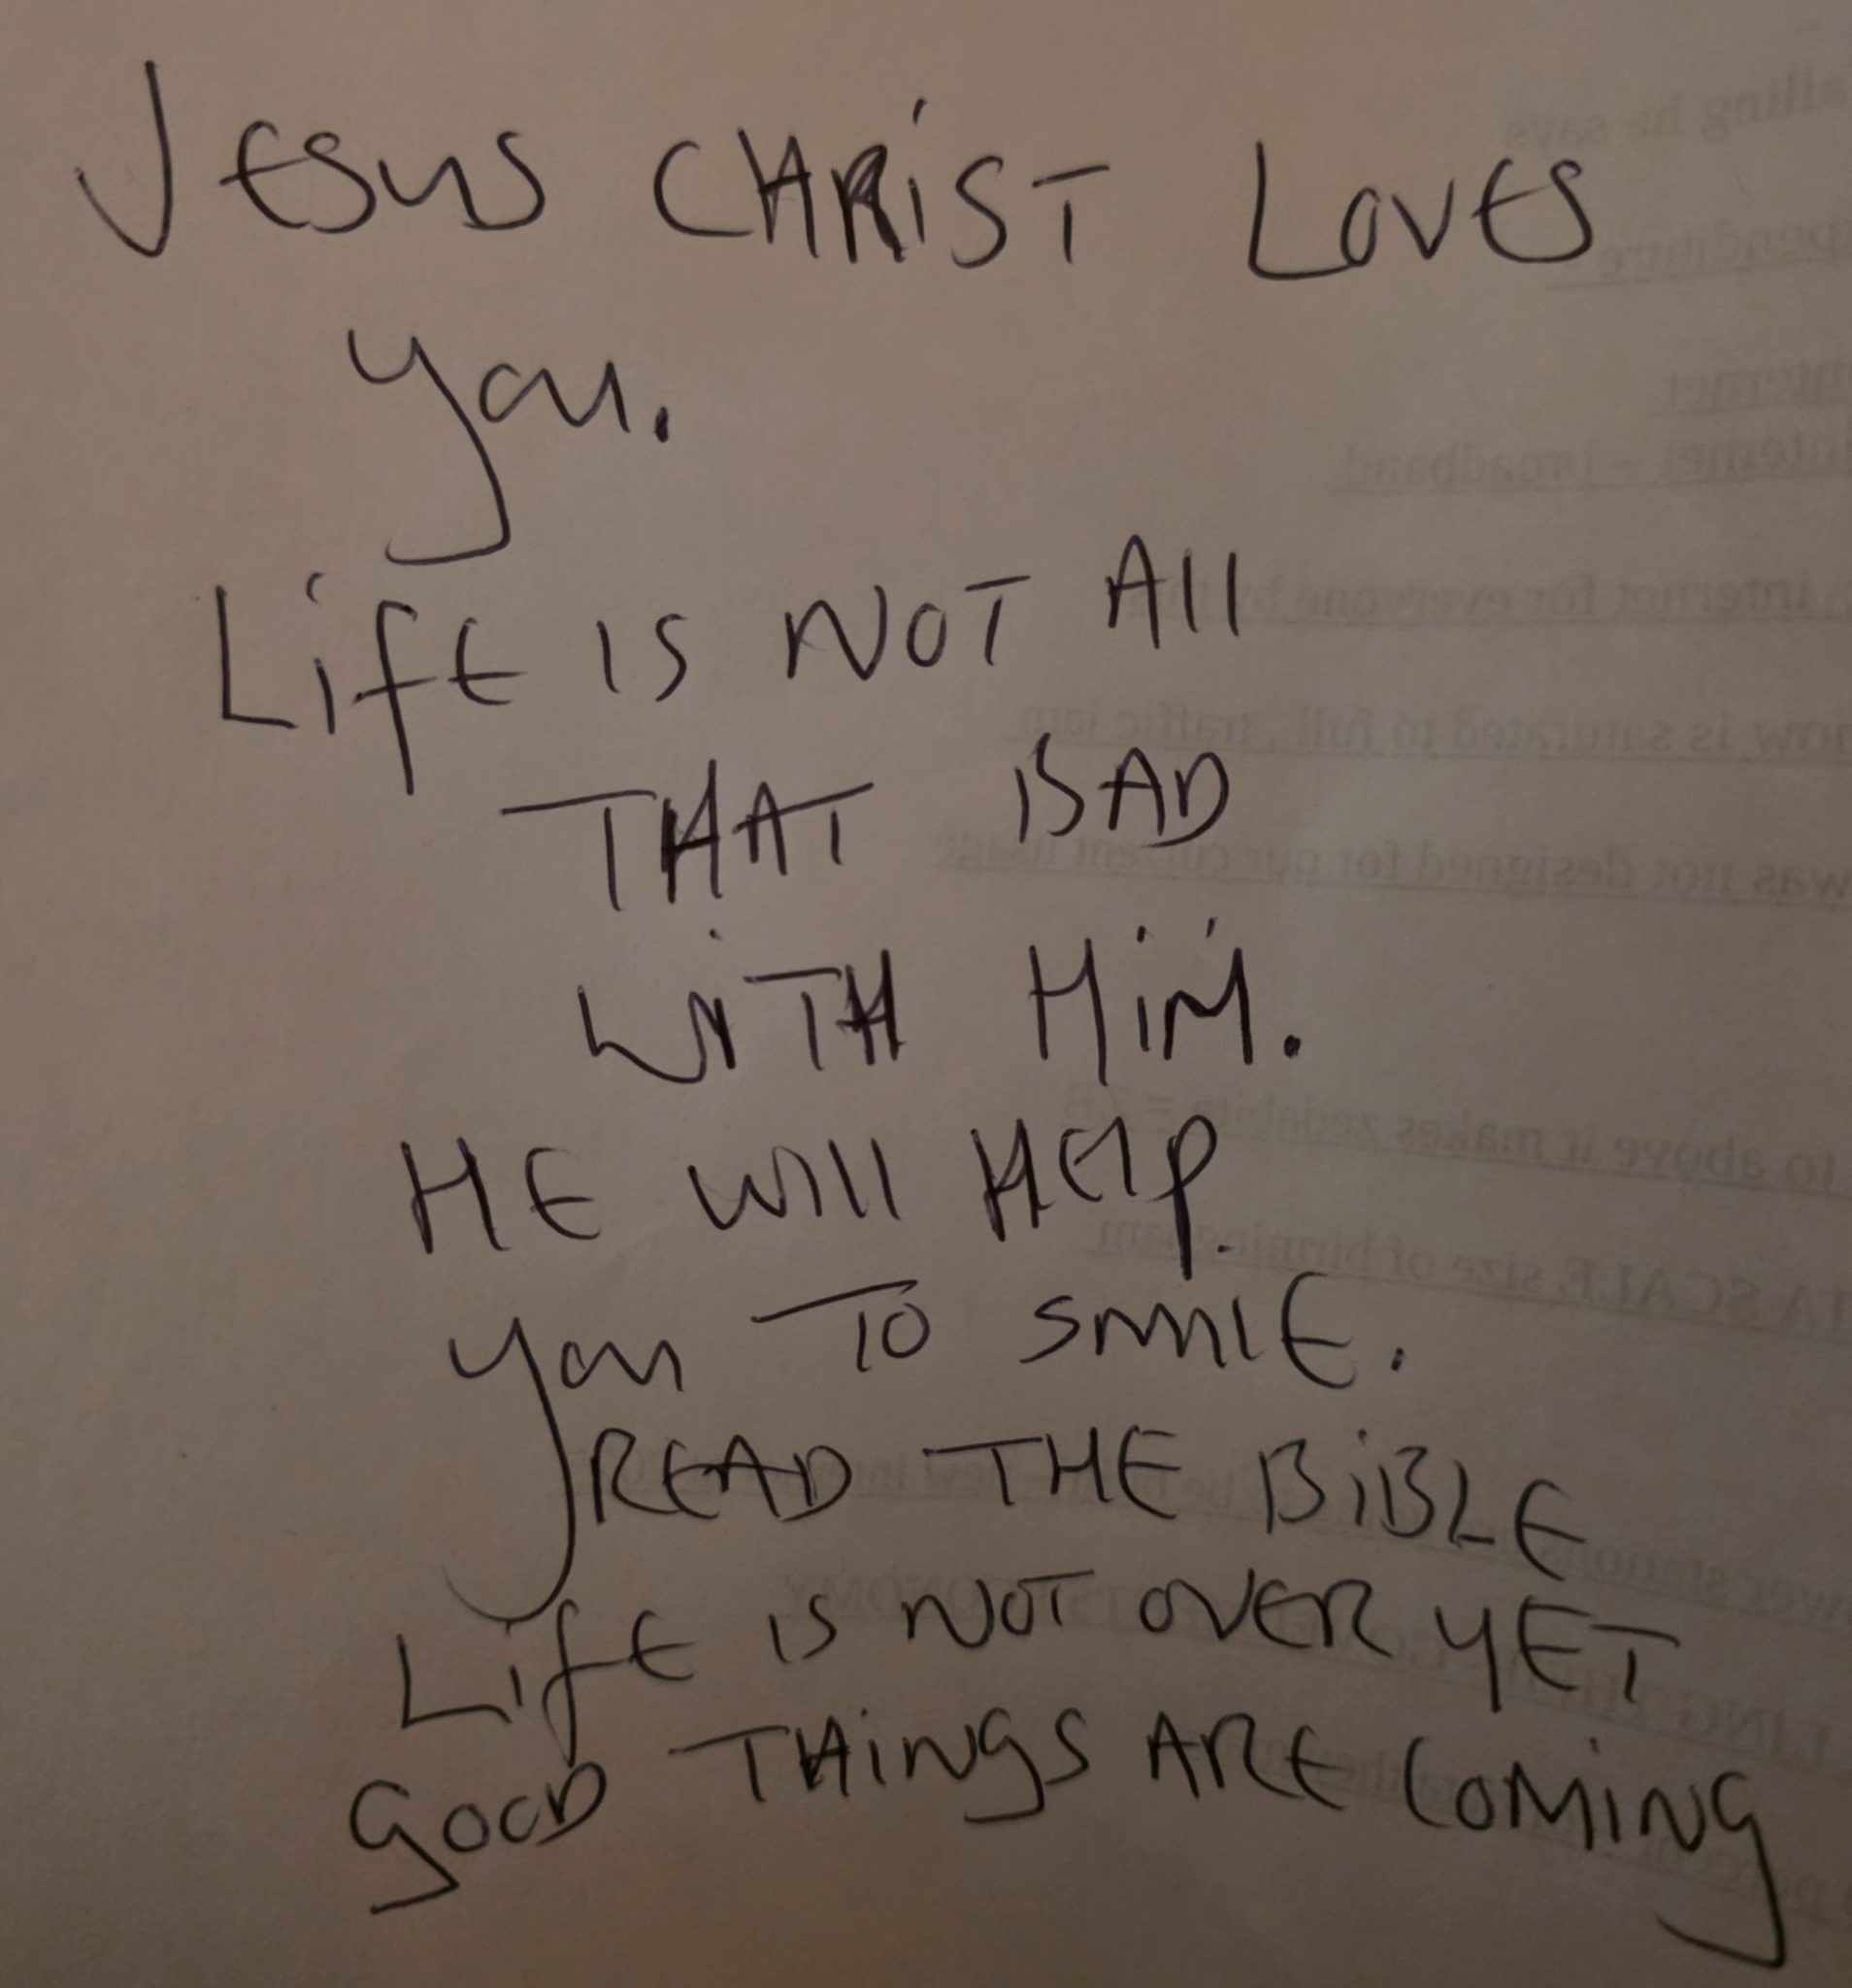 Jesus CHRIST Loves
you.
Life is NOT All
THAT BAD
WITH HiM.
HE will HElp.
you TO SMIlE.
READ THE BiBLE
Life is NOT OVER YET
gOOD THiNgS ARE COMiNg